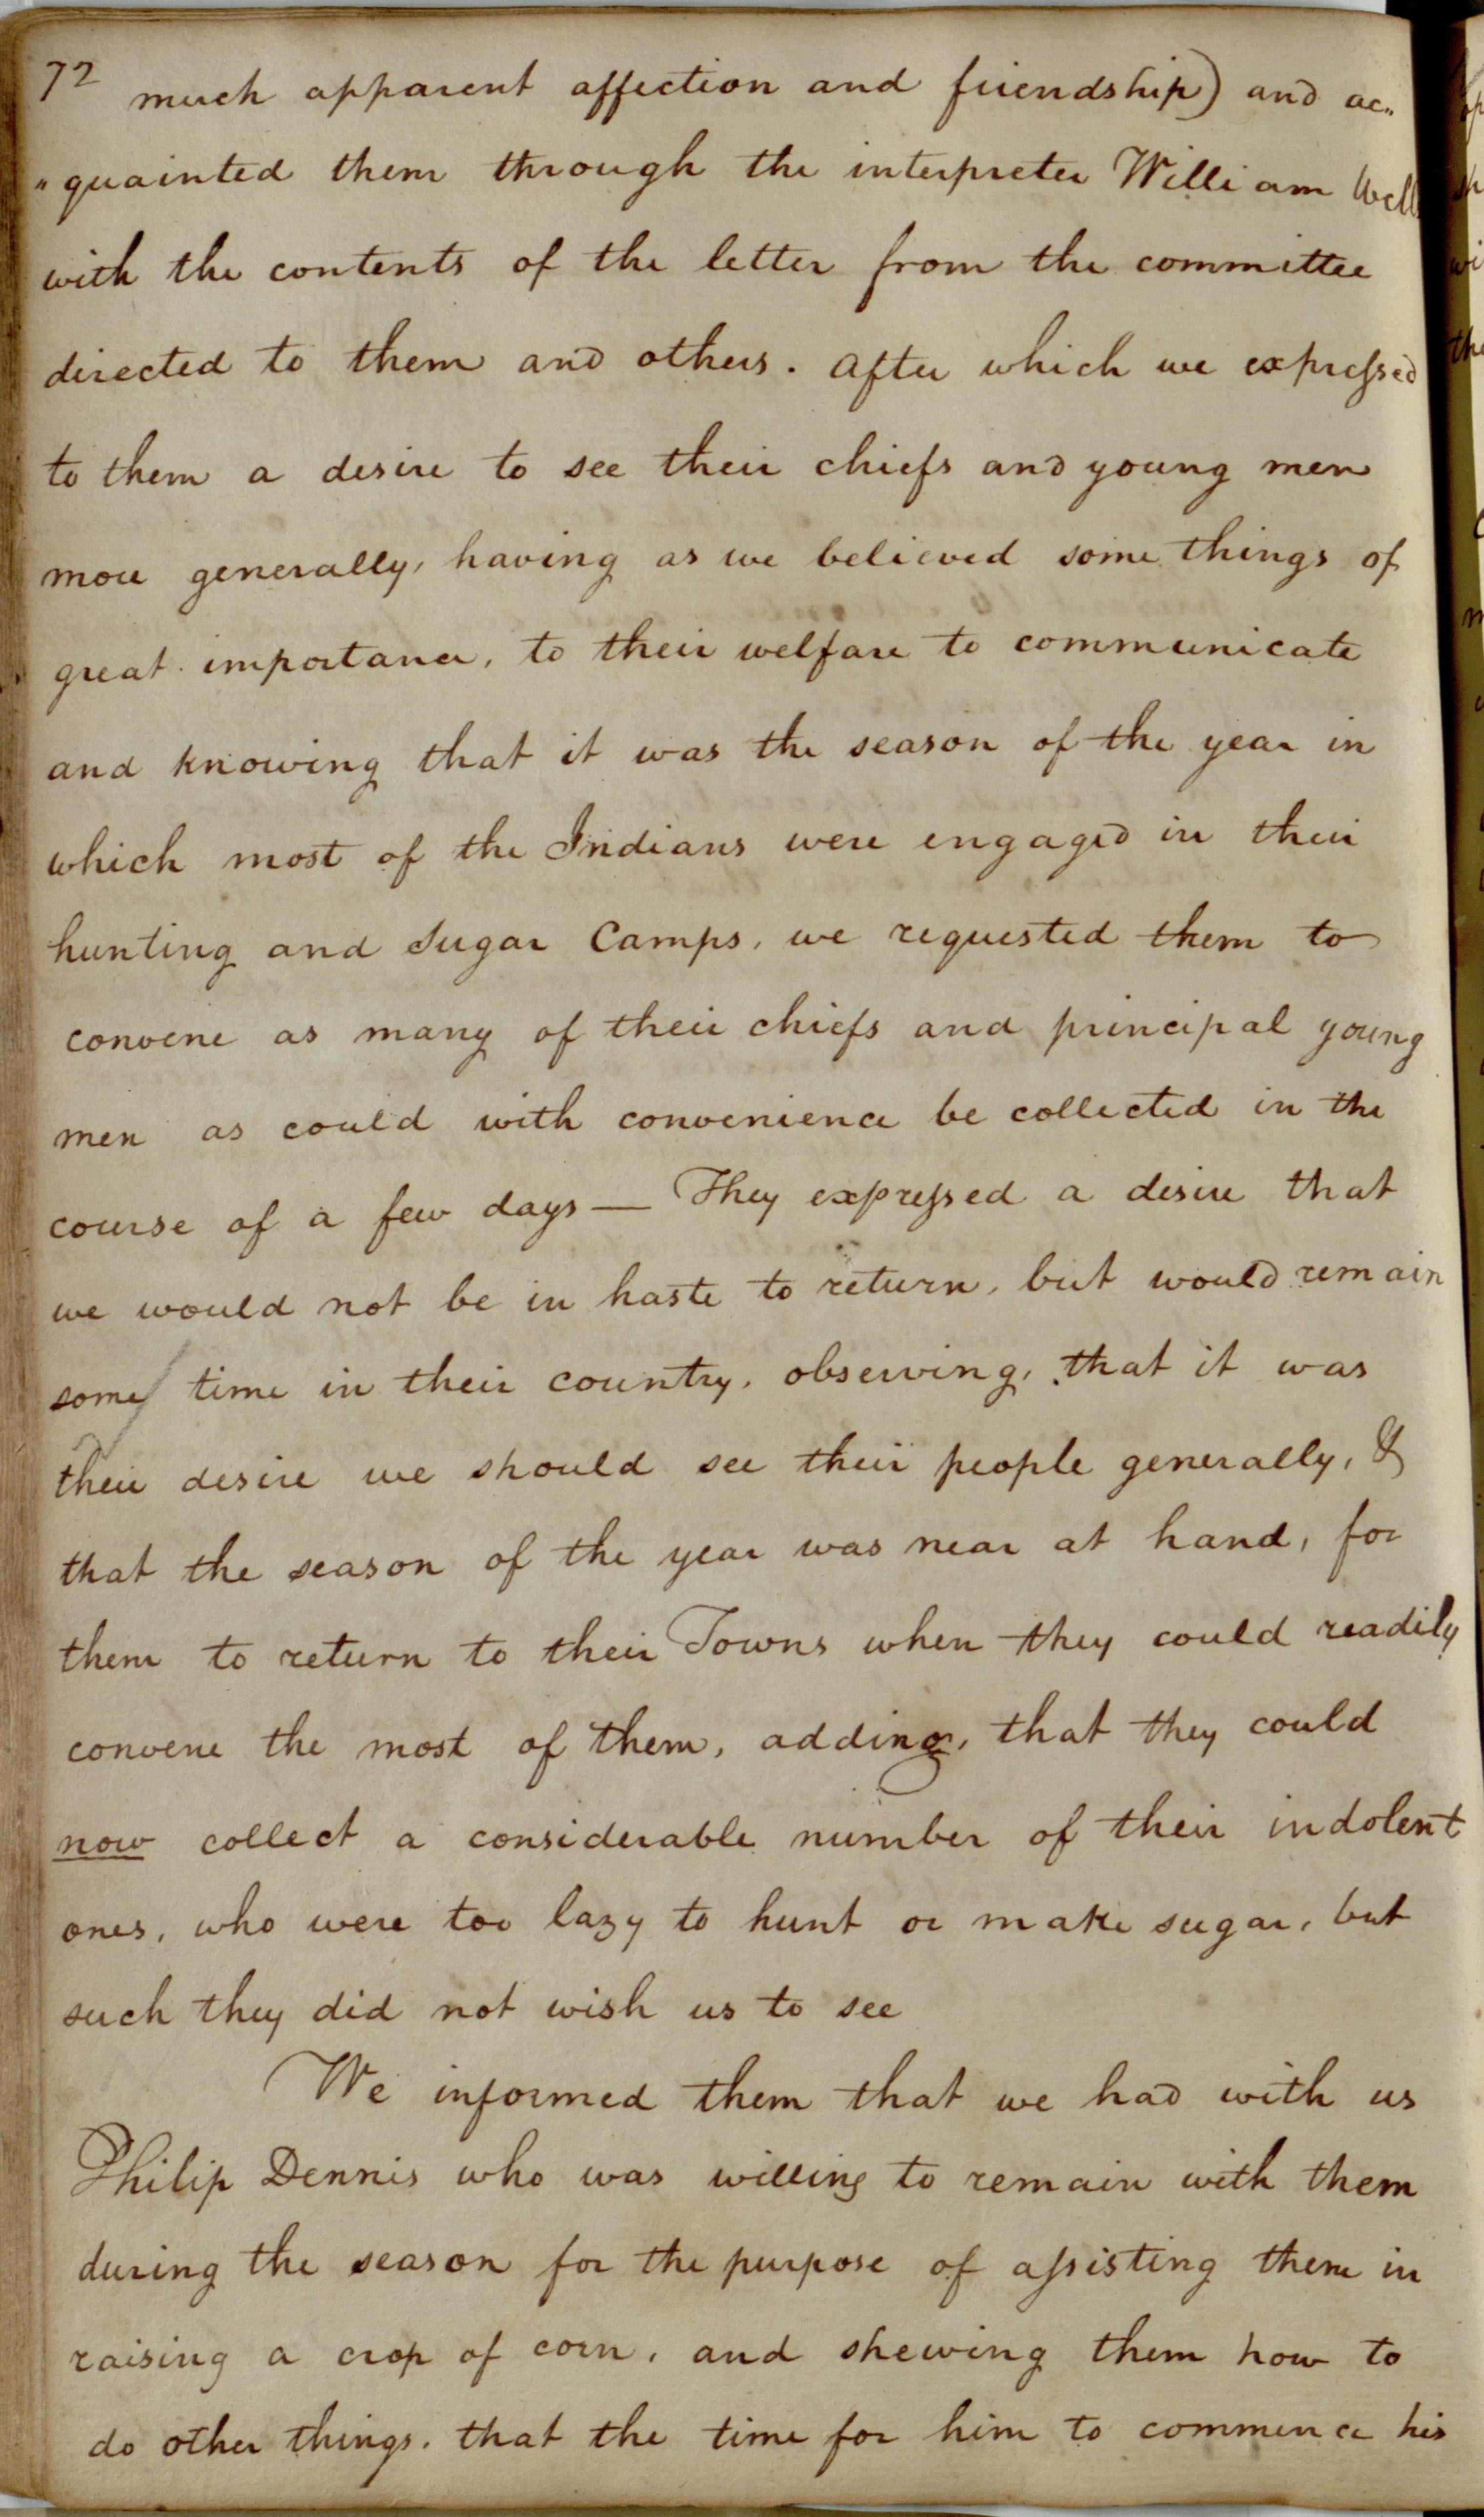 72 much apparent affection and friendship) and ac„
„quainted them through the interpreter William Wells
with the contents of the letter from the committee
directed to them and others. after which we expressed
to them a desire to see their chiefs and young men
more generally, having as we believed some things of
great importance, to their welfare to communicate
and knowing that it was the season of the year in
which most of the Indians were engaged in their
hunting and Sugar Camps, we requested them to
convene as many of their chiefs and principal young
men as could with convenience be collected in the
course of a few days — They expressed a desire that
we would not be in haste to return, but would remain
some time in their country, observing, that it was
their desire we should see their people generally, &
that the season of the year was near at hand, for
them to return to their Towns when they could readily
convene the most of them, adding, that they could
now collect a considerable number of their indolent
ones, who were too lazy to hunt or make sugar, but
such they did not wish us to see
We informed them that we had with us
Philip Dennis who was willing to remain with them
during the season for the purpose of assisting them in
raising a crop of corn, and shewing them how to
do other things. that the time for him to commence his